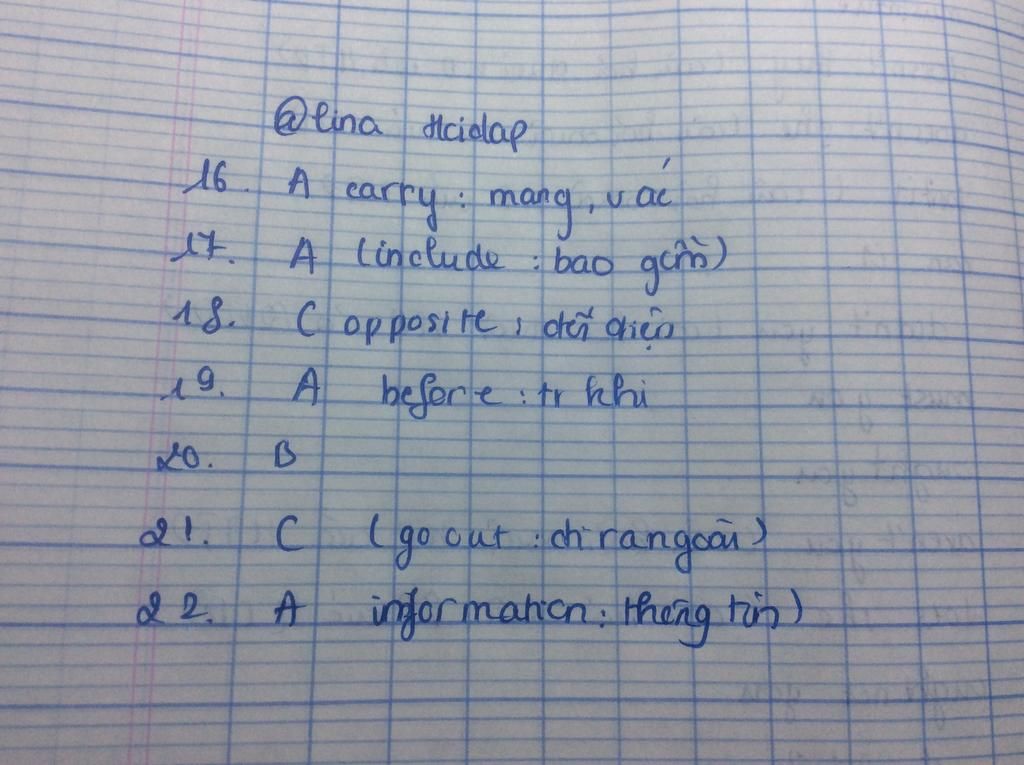 @lina Hcidap
16. A carry : mang, vác
17. A (include : bao gồm)
18. C opposite : đối diện
19. A before : tr khi
20. B
21. C (go out : đi ra ngoài)
22. A information : thông tin)